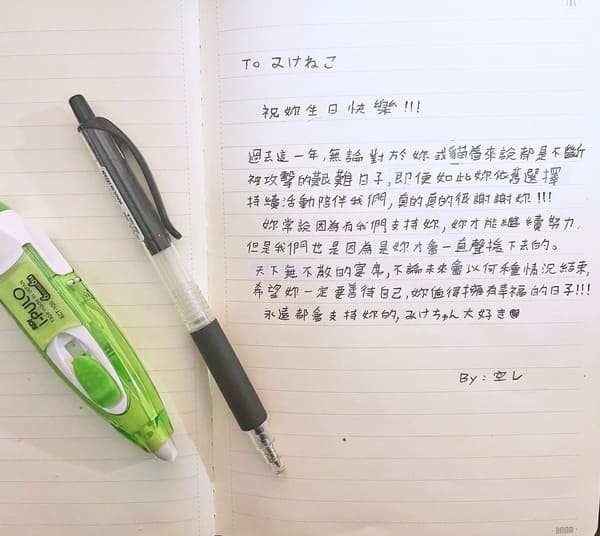 To みけねこ
祝妳生日快樂!!!
過去這一年,無論對於妳或貓眷來說都是不斷
被攻擊的艱難日子,即便如此妳依舊選擇
持續活動陪伴我們,真的真的很謝謝妳!!!
妳常說因為有我們支持妳,妳才能繼續努力,
但是我們也是因為是妳才會一直聲援下去的。
天下無不散的宴席,不論未來會以何種情況結束,
希望妳一定要善待自己,妳值得擁有幸福的日子!!!
永遠都會支持妳的,みけちゃん大好き♥
By:空レ
i-PULO